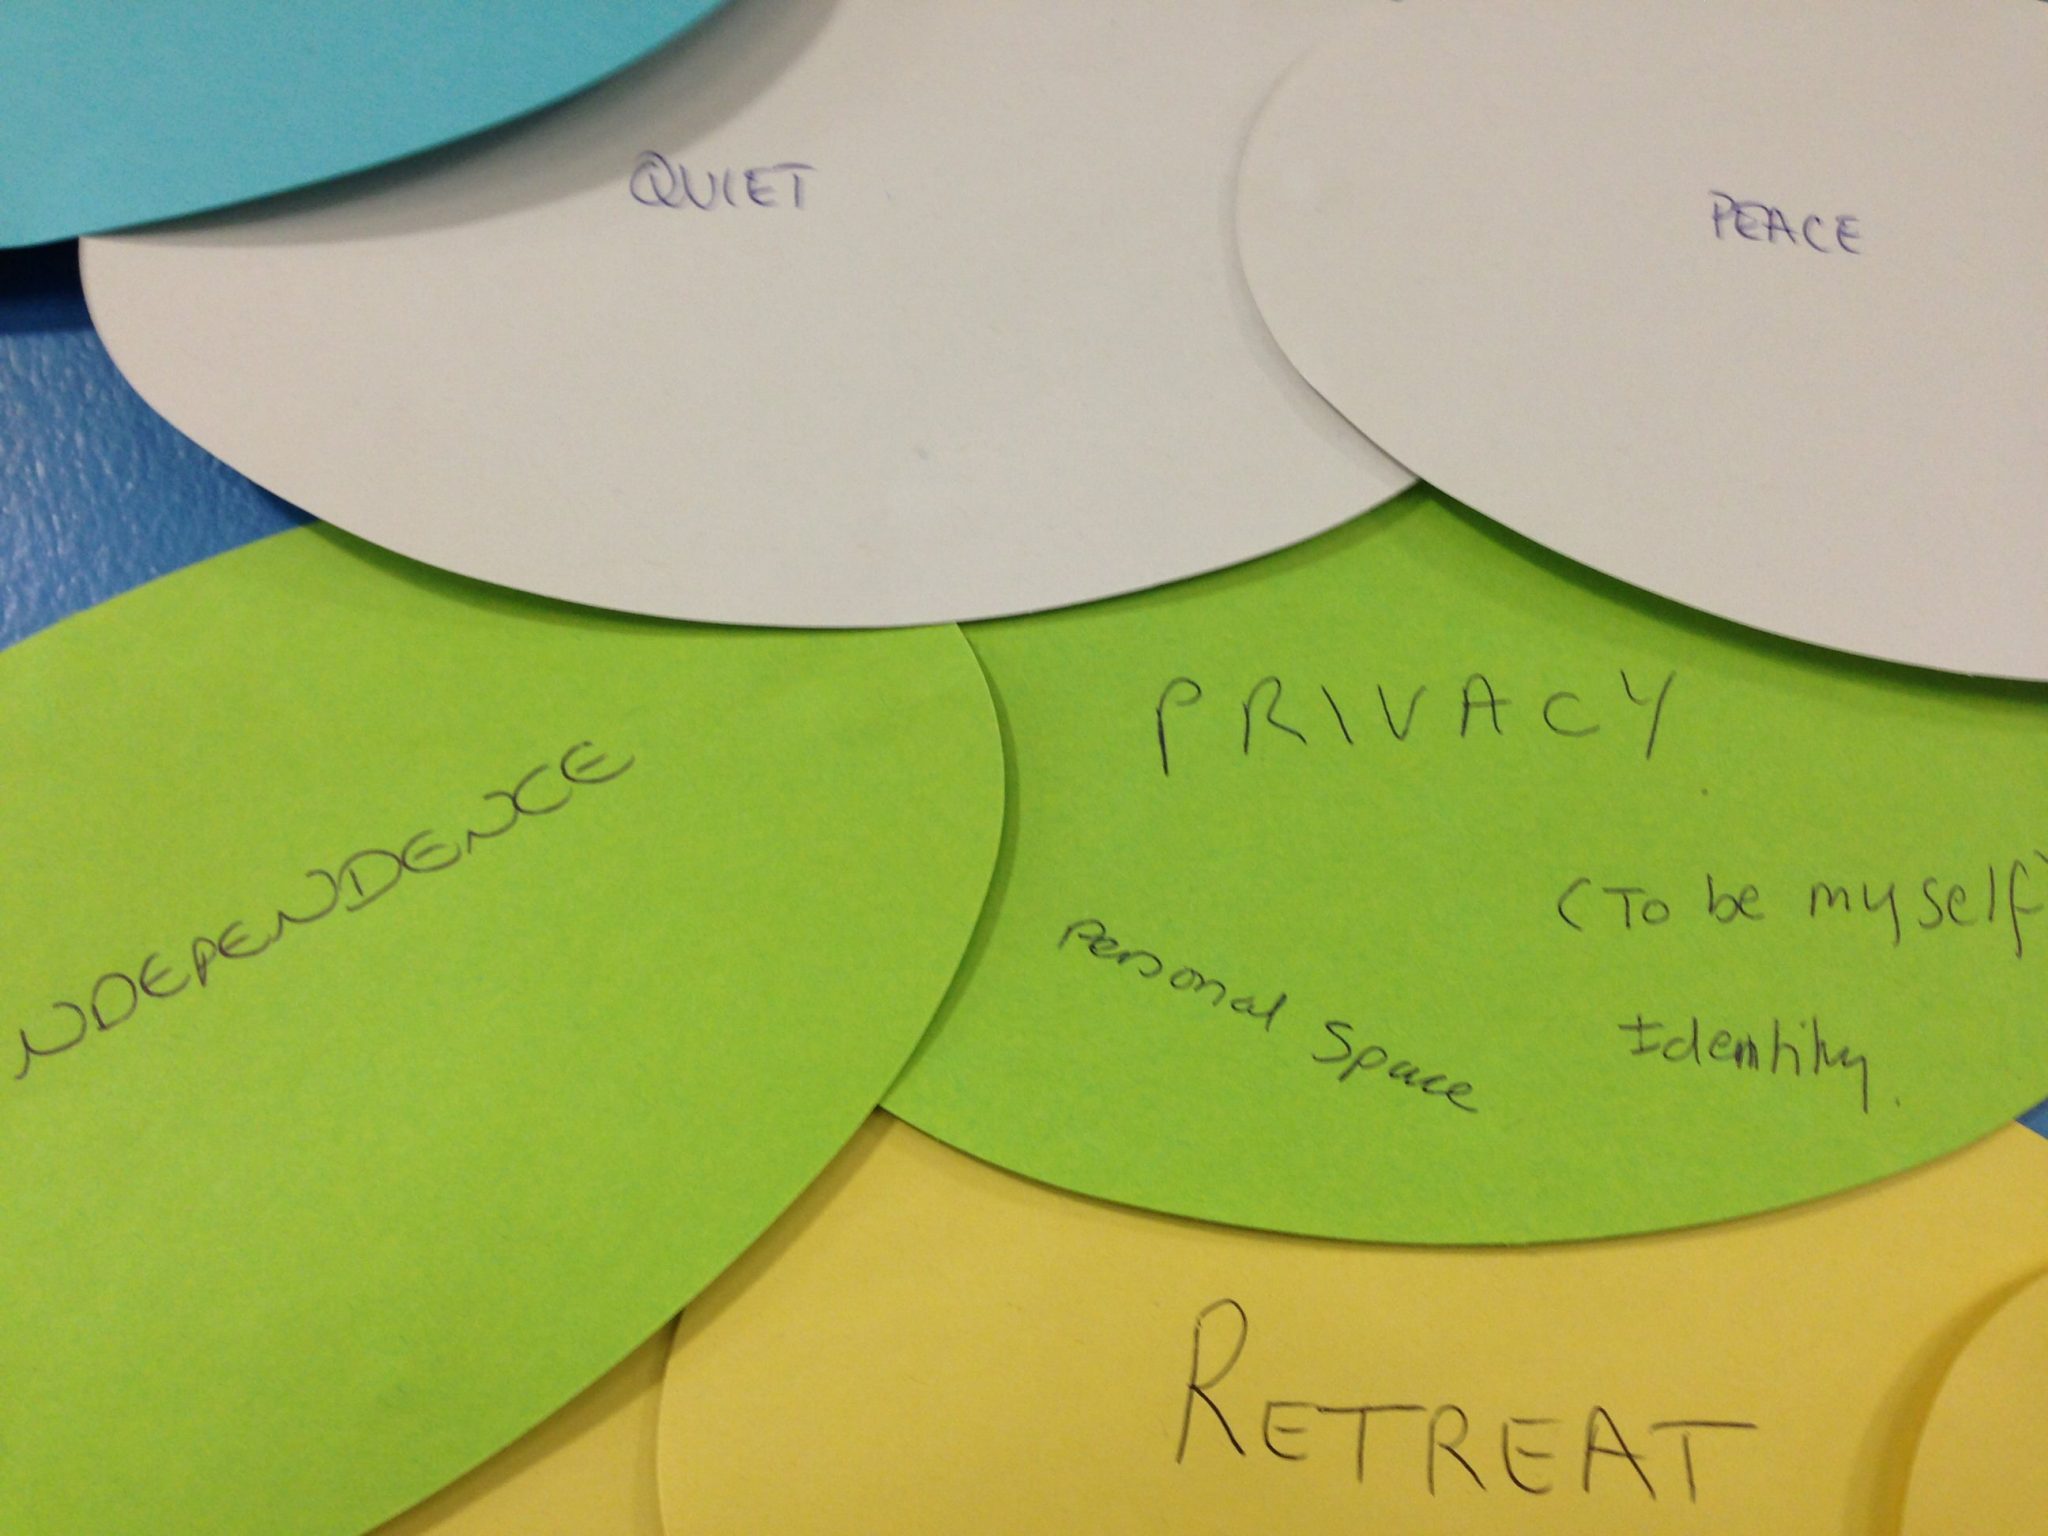 QUIET
PEACE
NDEPENDENCE
PRIVACY
(To be myself)
Personal Space
Identity.
RETREAT